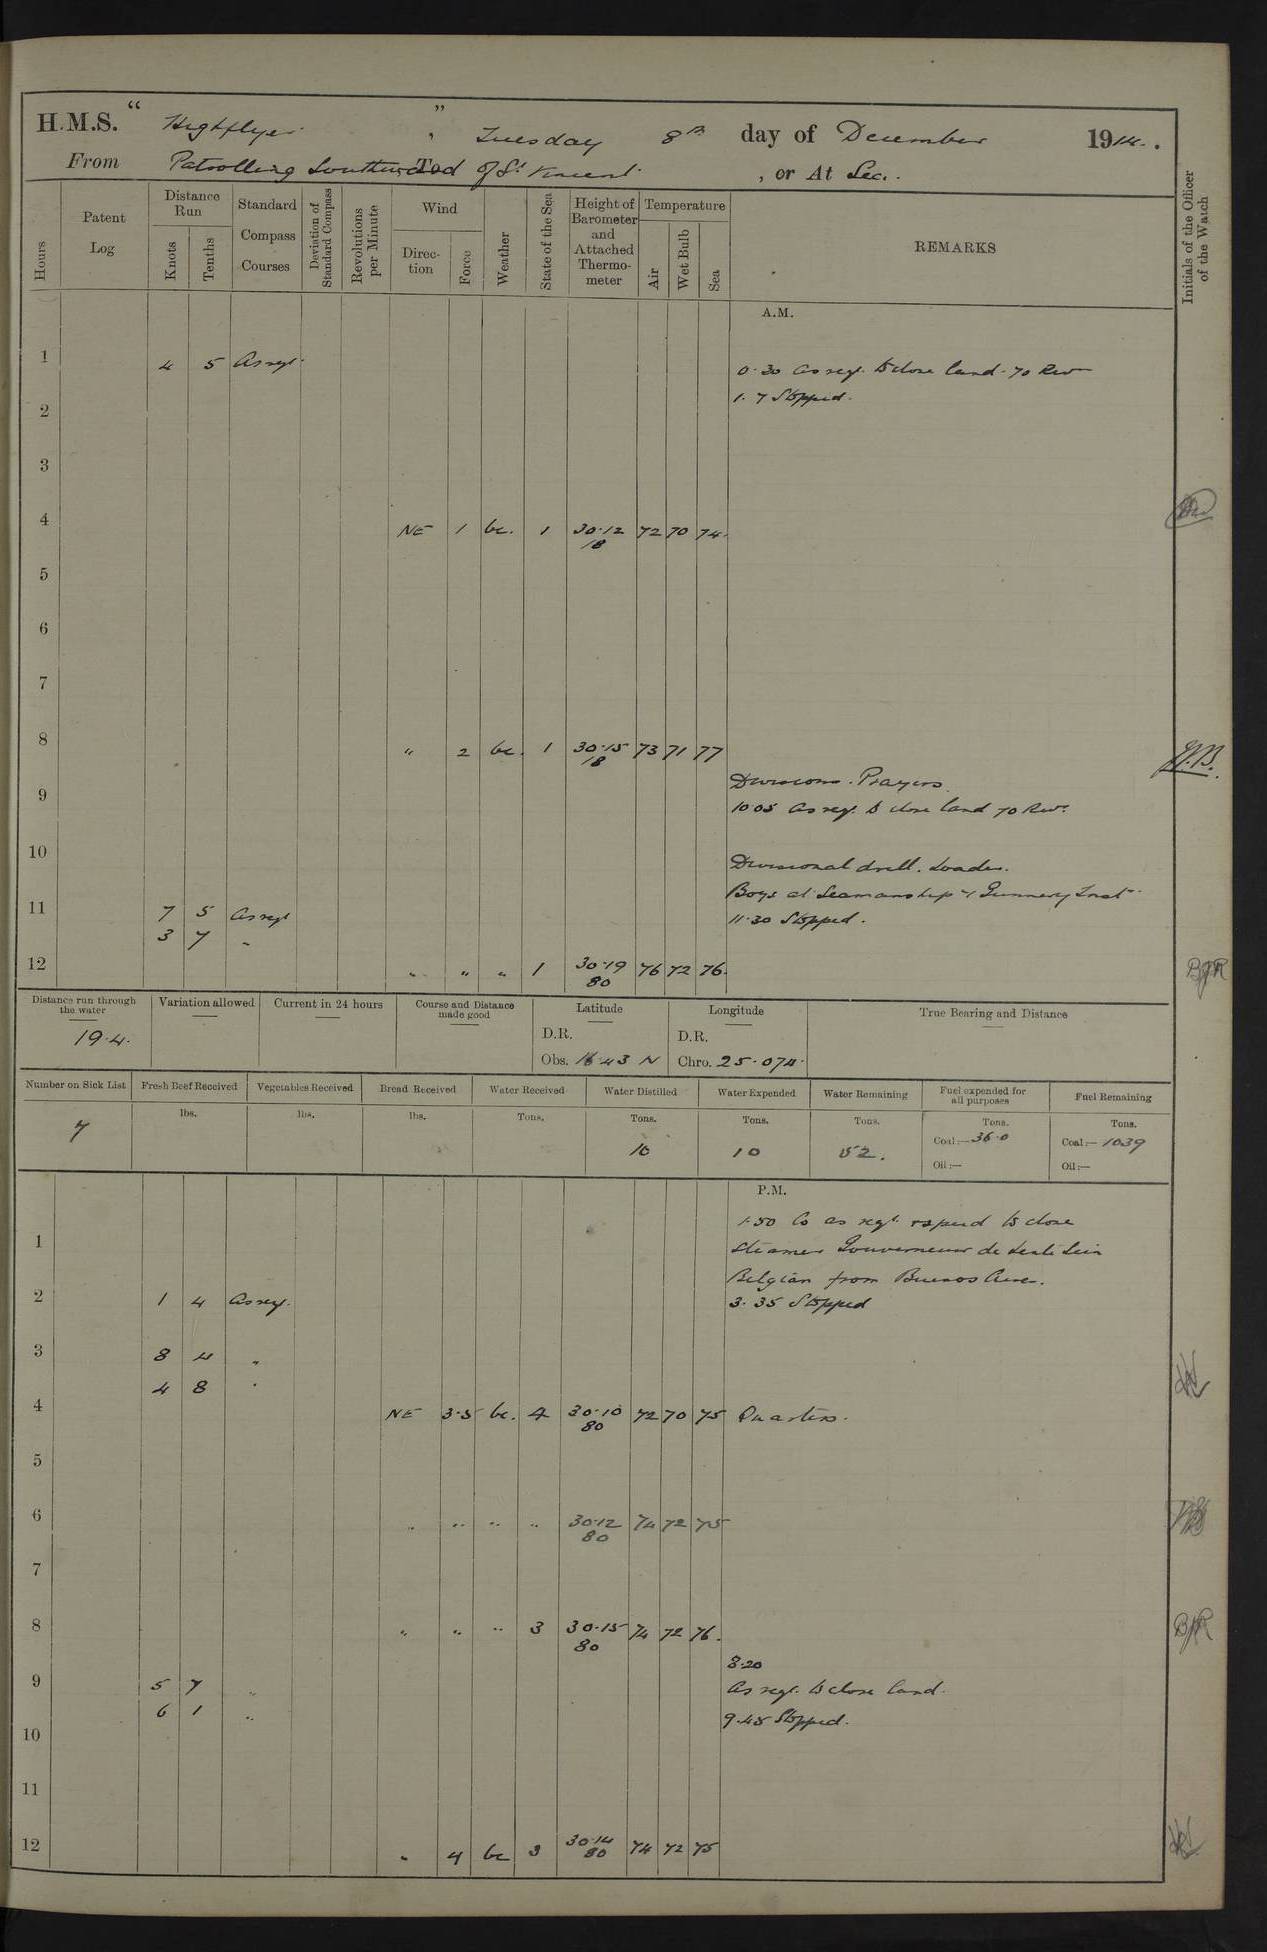 H.M.S. " Highflyer " , Tuesday 8th day of December 1914.
From Patrolling Southward To of St Vincent , or At Sea.
Hours
Patent Log
Distance Run
Knots
Tenths
Standard Compass Courses
Deviation of Standard Compass
Revolutions per Minute
Wind
Direction
Force
Weather
State of the Sea
Height of Barometer and Attached Thermometer
Temperature
Air
Wet Bulb
Sea
REMARKS
Initials of the Officer of the Watch
A.M.
1 4 5 As reqt. 0.30 as reqt. to close land. 70 Rev
1.7 Stopped.
2
3
4 NE 1 bc. 1 30.12 72 70 74.
18
5
6
7
8 " 2 bc. 1 30.15 73 71 77
18
Divisions. Prayers.
9 10.05 as reqt. to close land 70 Revs
10 Divisional drill.
Boys at Seamanship & Gunnery Inst
11 7 5 As reqt 11.30 Stopped.
3 7 "
12 " " " 1 30.19 76 72 76. BJR
80
Distance run through the water
19.4.
Variation allowed
Current in 24 hours
Course and Distance made good
Latitude
D.R.
Obs. 16.43 N
Longitude
D.R.
Chro. 25.074.
True Bearing and Distance
Number on Sick List
7
Fresh Beef Received
lbs.
Vegetables Received
lbs.
Bread Received
lbs.
Water Received
Tons.
Water Distilled
Tons.
10
Water Expended
Tons.
10
Water Remaining
Tons.
52.
Fuel expended for all purposes
Tons.
Coal:— 36.0
Oil:—
Fuel Remaining
Tons.
Coal:— 1039
Oil:—
P.M.
1.50 Co as reqt. & speed to close
1 Steamer Gouverneur de
Belgian from Buenos Aires.
2 1 4 As reqt. 3.35 Stopped
3 8 4 "
4 8 "
4 NE 3.5 bc. 4 30.10 72 70 75 Quarters.
80
5
6 " " " " 30.12 74 72 75
80
7
8 " " " 3 30.15 74 72 76. BJR
80
8.20
9 5 7 " As reqt. to close land.
6 1 " 9.45 Stopped.
10
11
12 " 4 bc 3 30.14 74 72 75
80